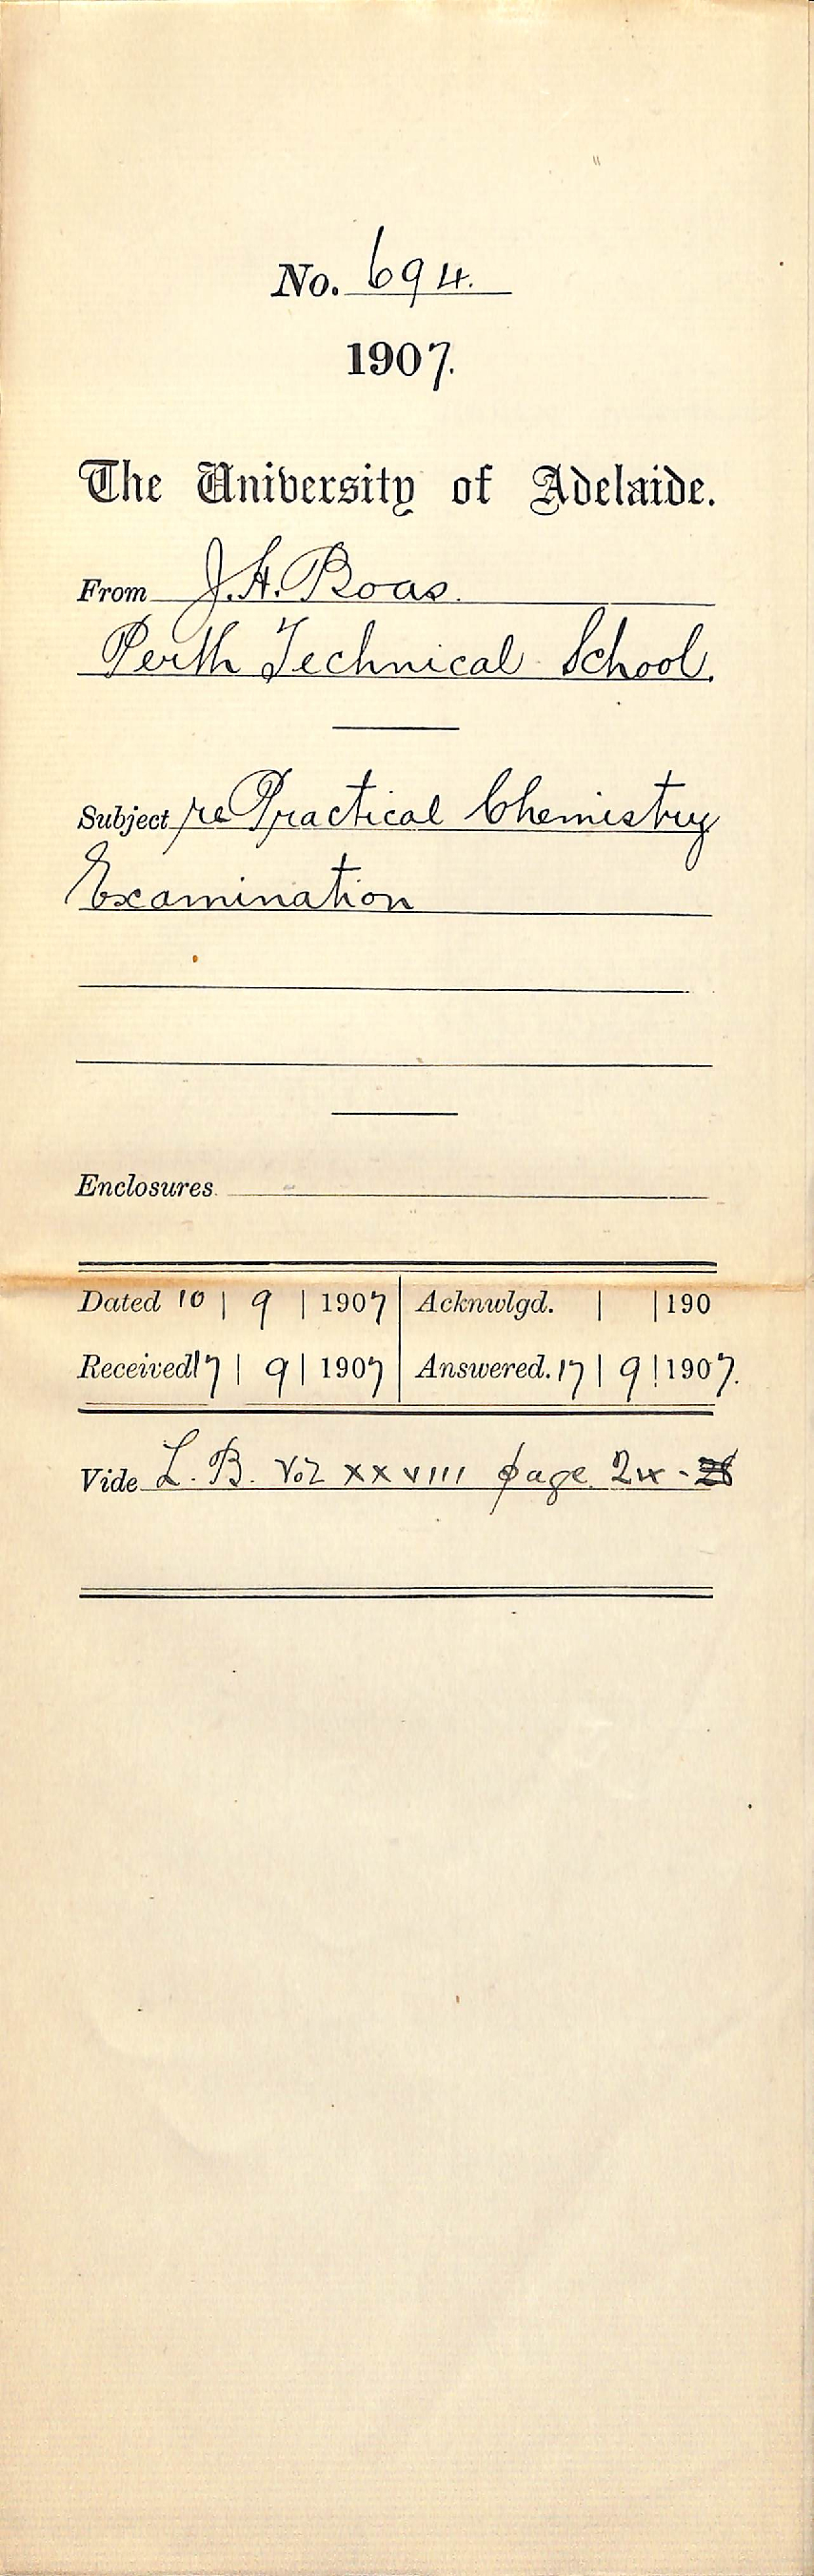 No. 694.
1907.
The University of Adelaide.
From J.H. Boas.
Perth Technical School.
Subject re Practical Chemistry
Examination
Enclosures
Dated 10 | 9 | 1907 Acknwlgd. | | 190
Received 17 | 9 | 1907 Answered. 17 | 9 | 1907.
Vide L. B. Vol xxviii page